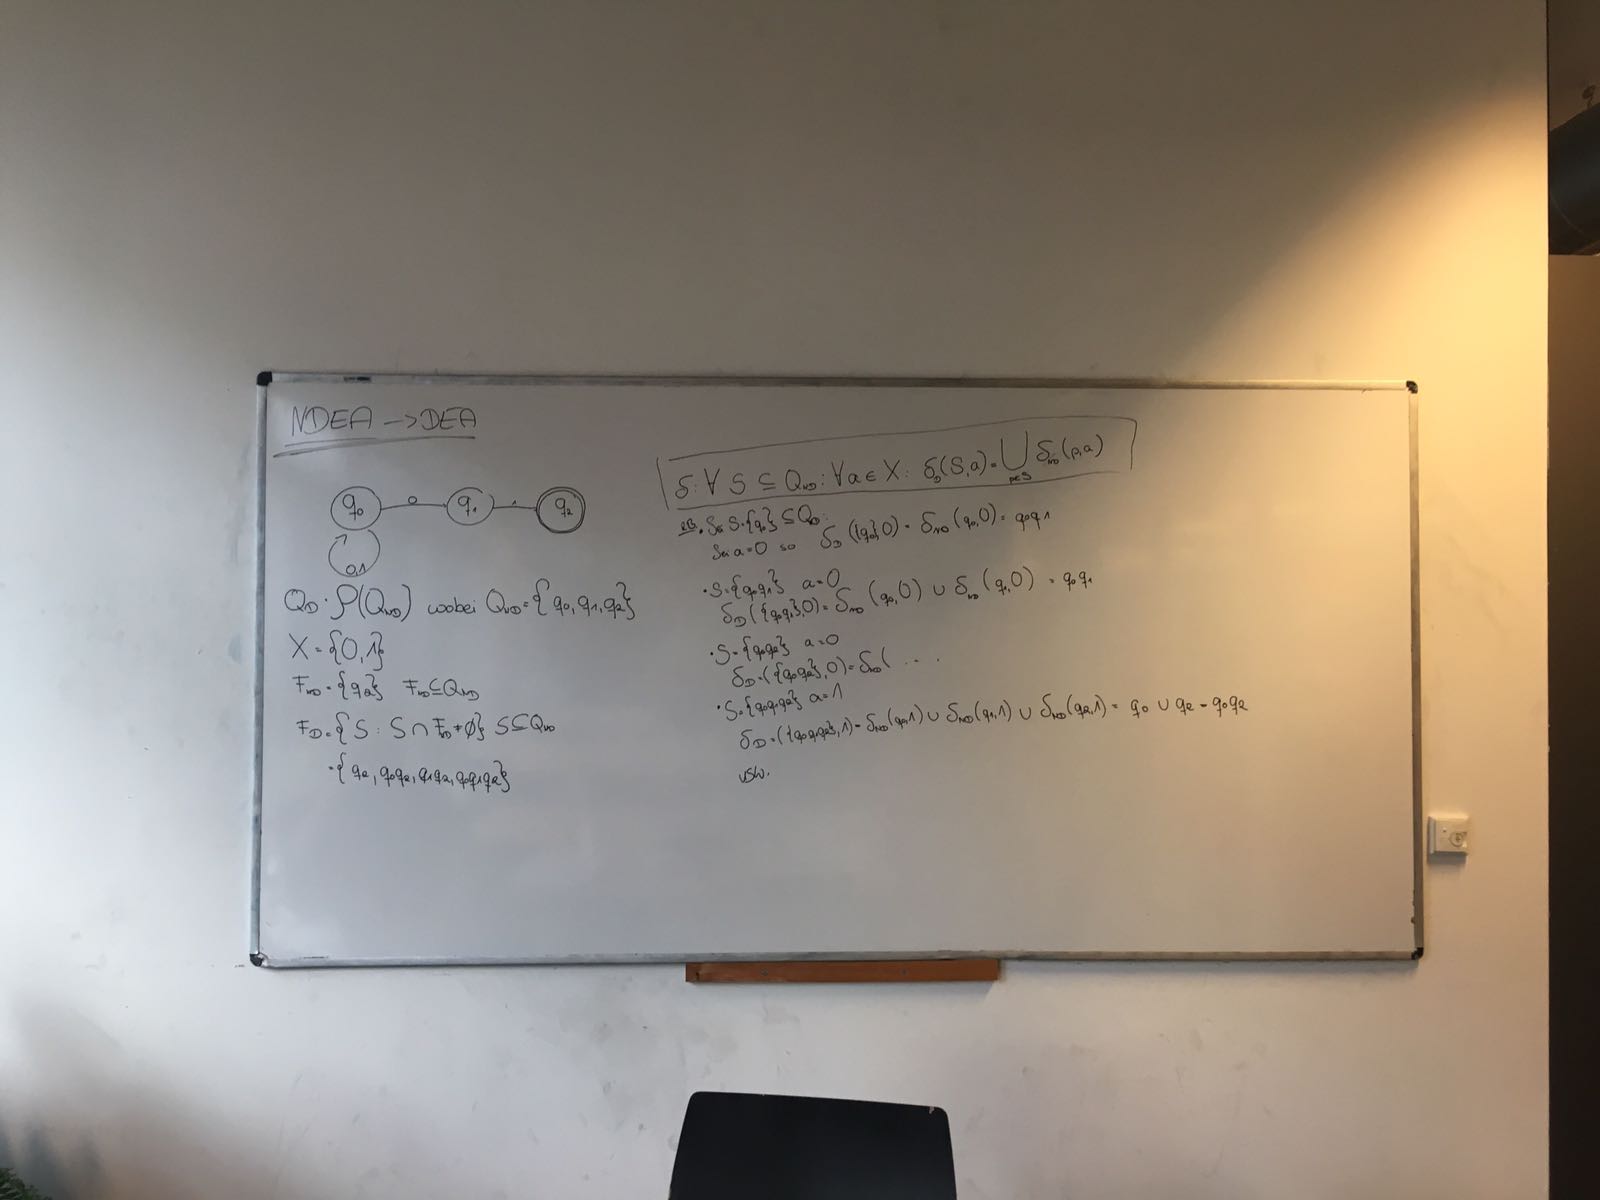 NDEA → DEA
q₀ 0 q₁ 1 q₂
0,1
Q_D = P(Q_ND) wobei Q_ND = {q₀, q₁, q₂}
X = {0,1}
F_ND = {q₂} F_ND ⊆ Q_ND
F_D = {S : S ∩ F_ND ≠ ∅} S ⊆ Q_ND
= {q₂, q₀q₂, q₁q₂, q₀q₁q₂}
δ: ∀ S ⊆ Q_ND : ∀ a ∈ X : δ_D(S,a) = ⋃_{p∈S} δ_ND(p,a)
z.B. • Sei S = {q₀} ⊆ Q_D:
Sei a=0 so δ_D({q₀},0) = δ_ND(q₀,0) = q₀q₁
• S = {q₀q₁} a=0
δ_D({q₀q₁},0) = δ_ND(q₀,0) ∪ δ_ND(q₁,0) = q₀q₁
• S = {q₀q₂} a=0
δ_D = ({q₀q₂},0) = δ_ND( ....
• S = {q₀q₁q₂} a=1
δ_D = ({q₀q₁q₂},1) = δ_ND(q₀,1) ∪ δ_ND(q₁,1) ∪ δ_ND(q₂,1) = q₀ ∪ q₂ = q₀q₂
usw.